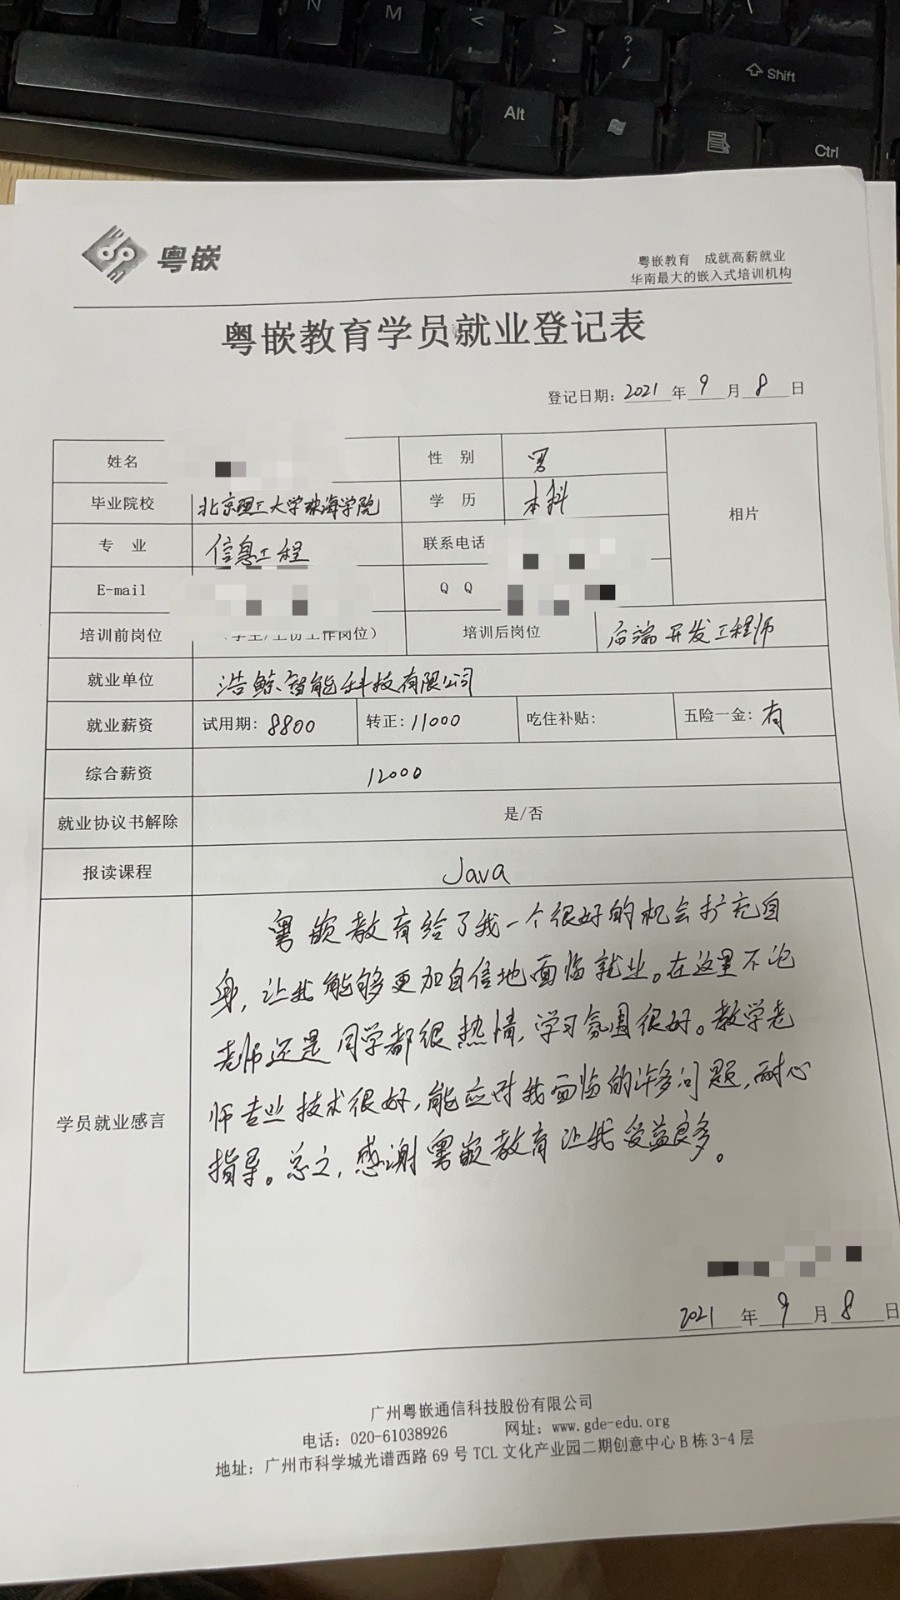 N
M
<
,
>
.
?
/
Shift
Alt
Ctrl
粤嵌
粤嵌教育 成就高薪就业
华南最大的嵌入式培训机构
粤嵌教育学员就业登记表
登记日期：2021年9月8日
姓名 性 别 男
毕业院校 北京理工大学珠海学院 学 历 本科
相片
专 业 信息工程 联系电话
E-mail Q Q
培训前岗位 （学生/上份工作岗位） 培训后岗位 后端开发工程师
就业单位 浩鲸智能科技有限公司
就业薪资 试用期：8800 转正：11000 吃住补贴： 五险一金：有
综合薪资 12000
就业协议书解除 是/否
报读课程 Java
学员就业感言
粤嵌教育给了我一个很好的机会扩充自
身，让我能够更加自信地面临就业。在这里不论
老师还是同学都很热情，学习氛围很好。教学老
师专业技术很好，能应对我面临的许多问题，耐心
指导。总之，感谢粤嵌教育让我受益良多。
2021年9月8日
广州粤嵌通信科技股份有限公司
电话：020-61038926 网址：www.gde-edu.org
地址：广州市科学城光谱西路69号TCL文化产业园二期创意中心B栋3-4层